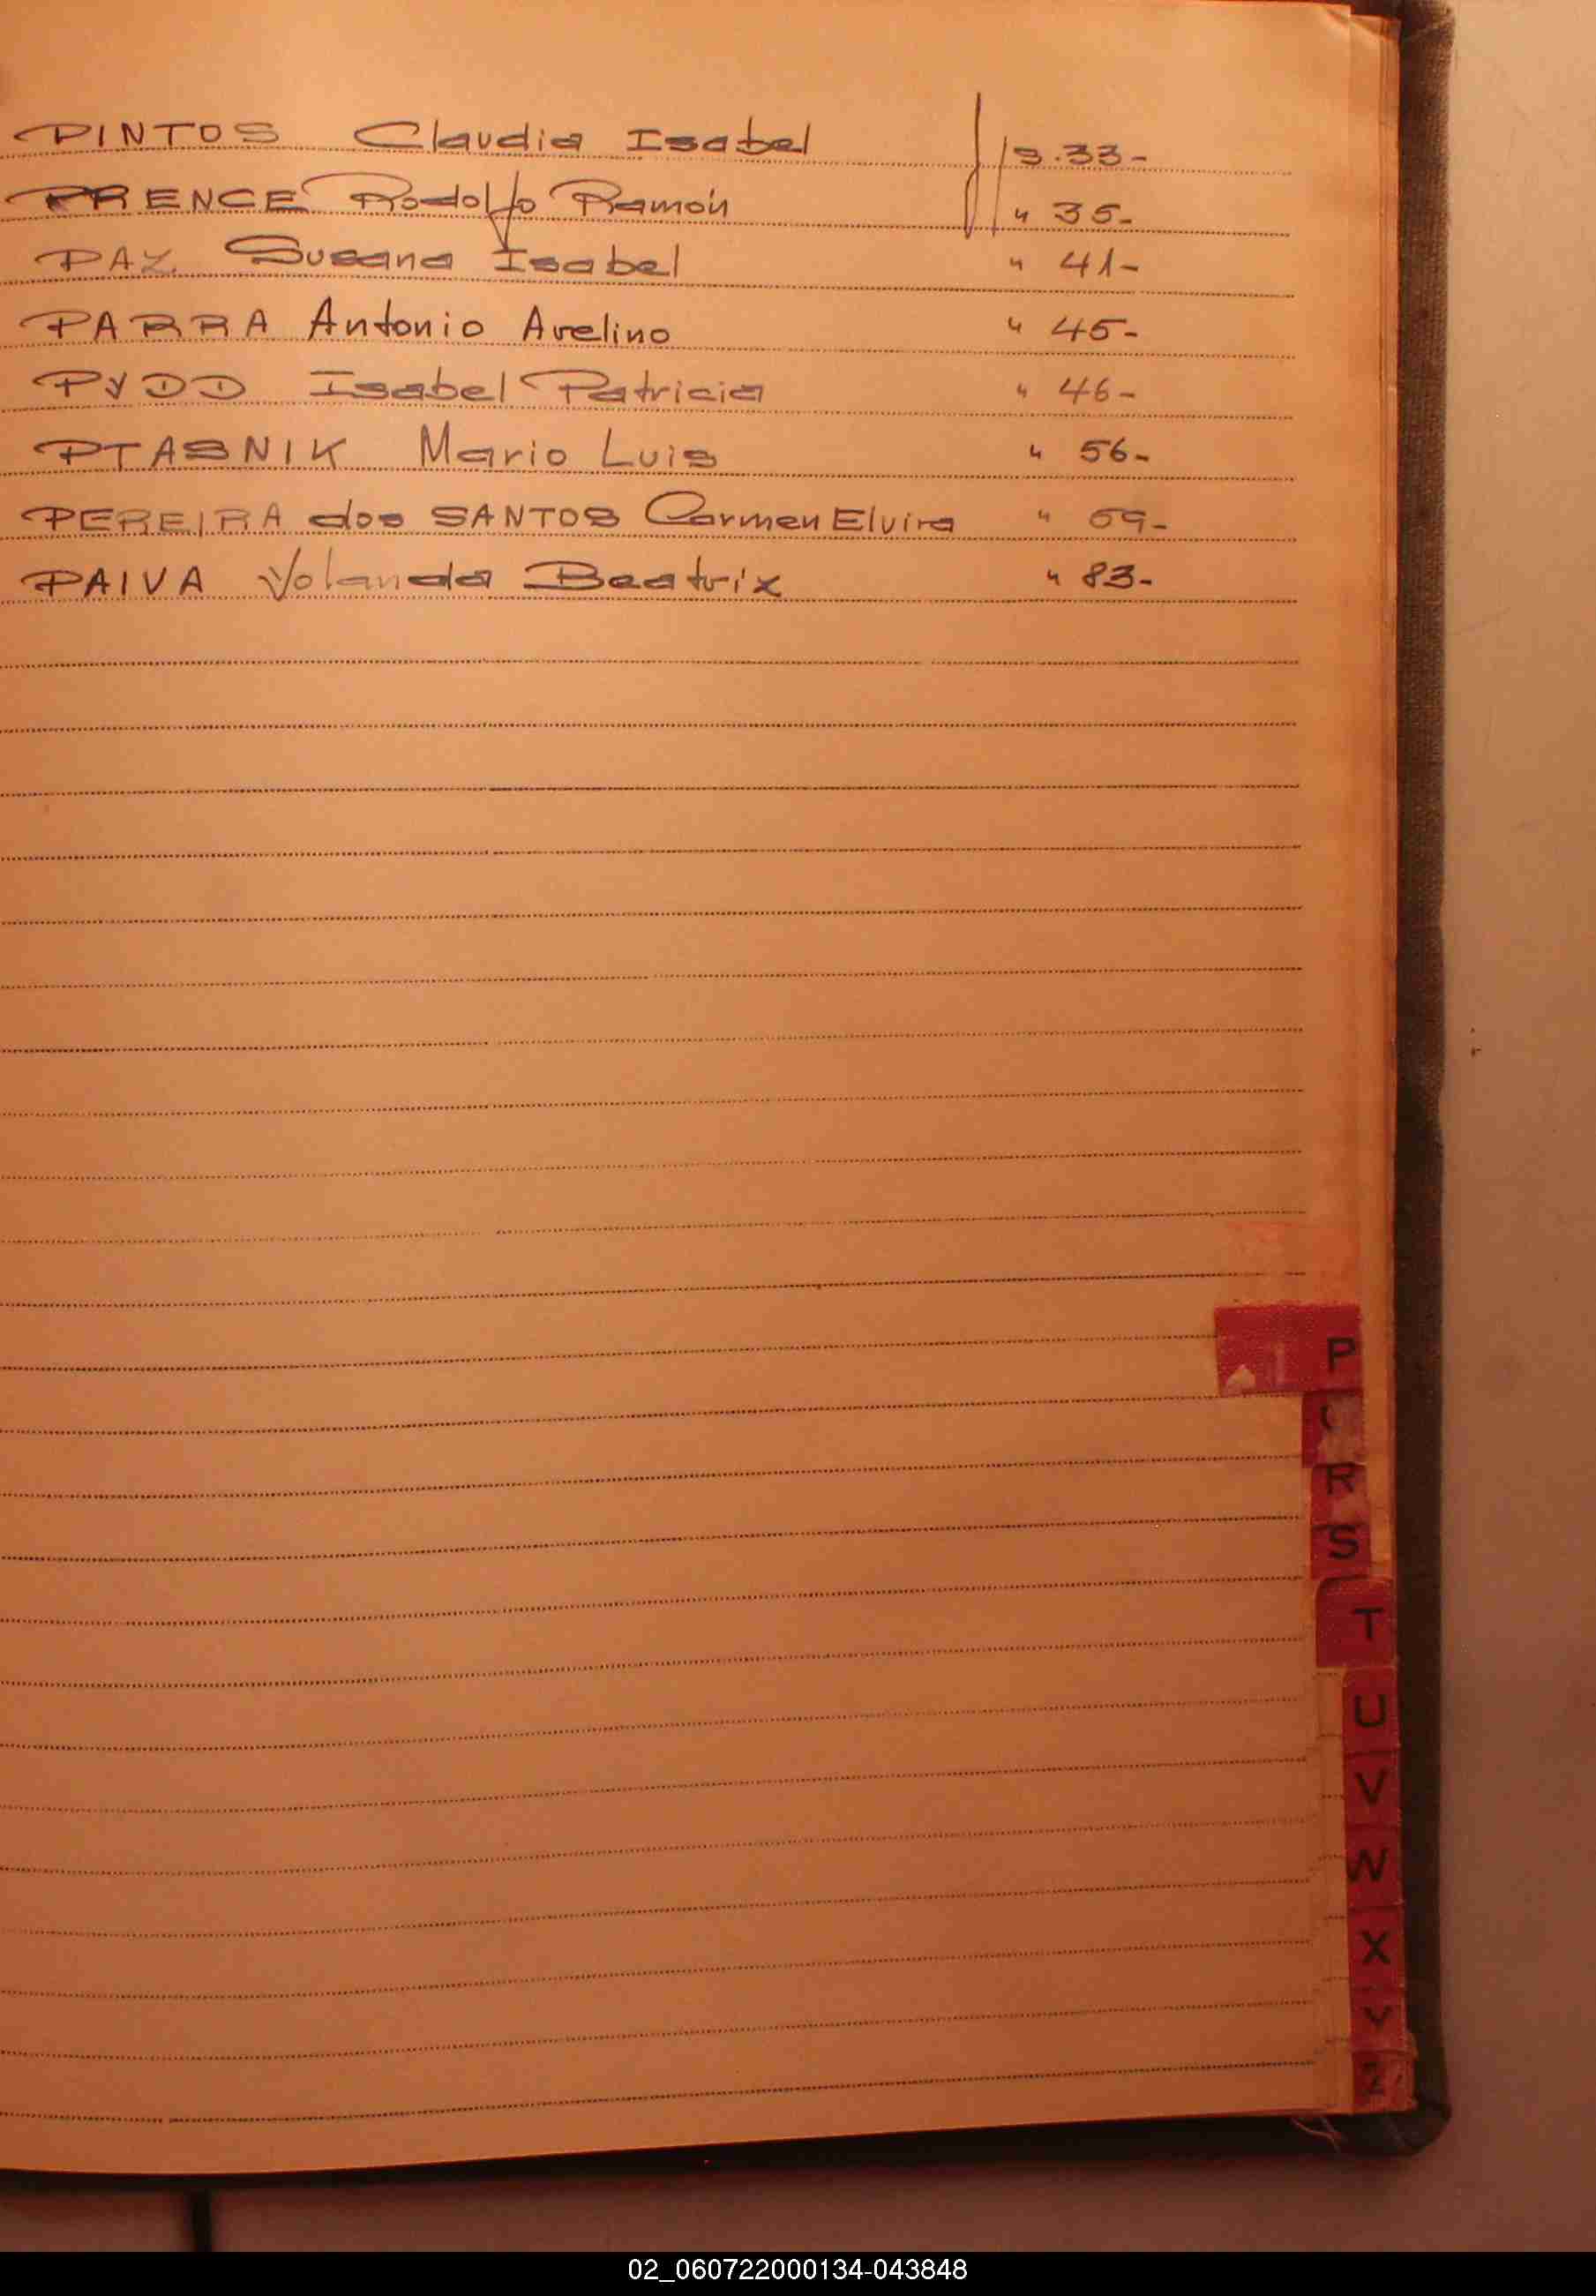 PINTOS Claudia Isabel 9.33-
PRENCE Rodolfo Ramón " 35-
PAZ Susana Isabel " 41-
PARRA Antonio Avelino " 45-
PyDD Isabel Patricia " 46-
PTASNIK Mario Luis " 56-
PEREIRA dos SANTOS Carmen Elvira " 69-
PAIVA Yolanda Beatrix " 83-
P
R
S
T
U
V
W
X
Y
Z
02_060722000134-043848